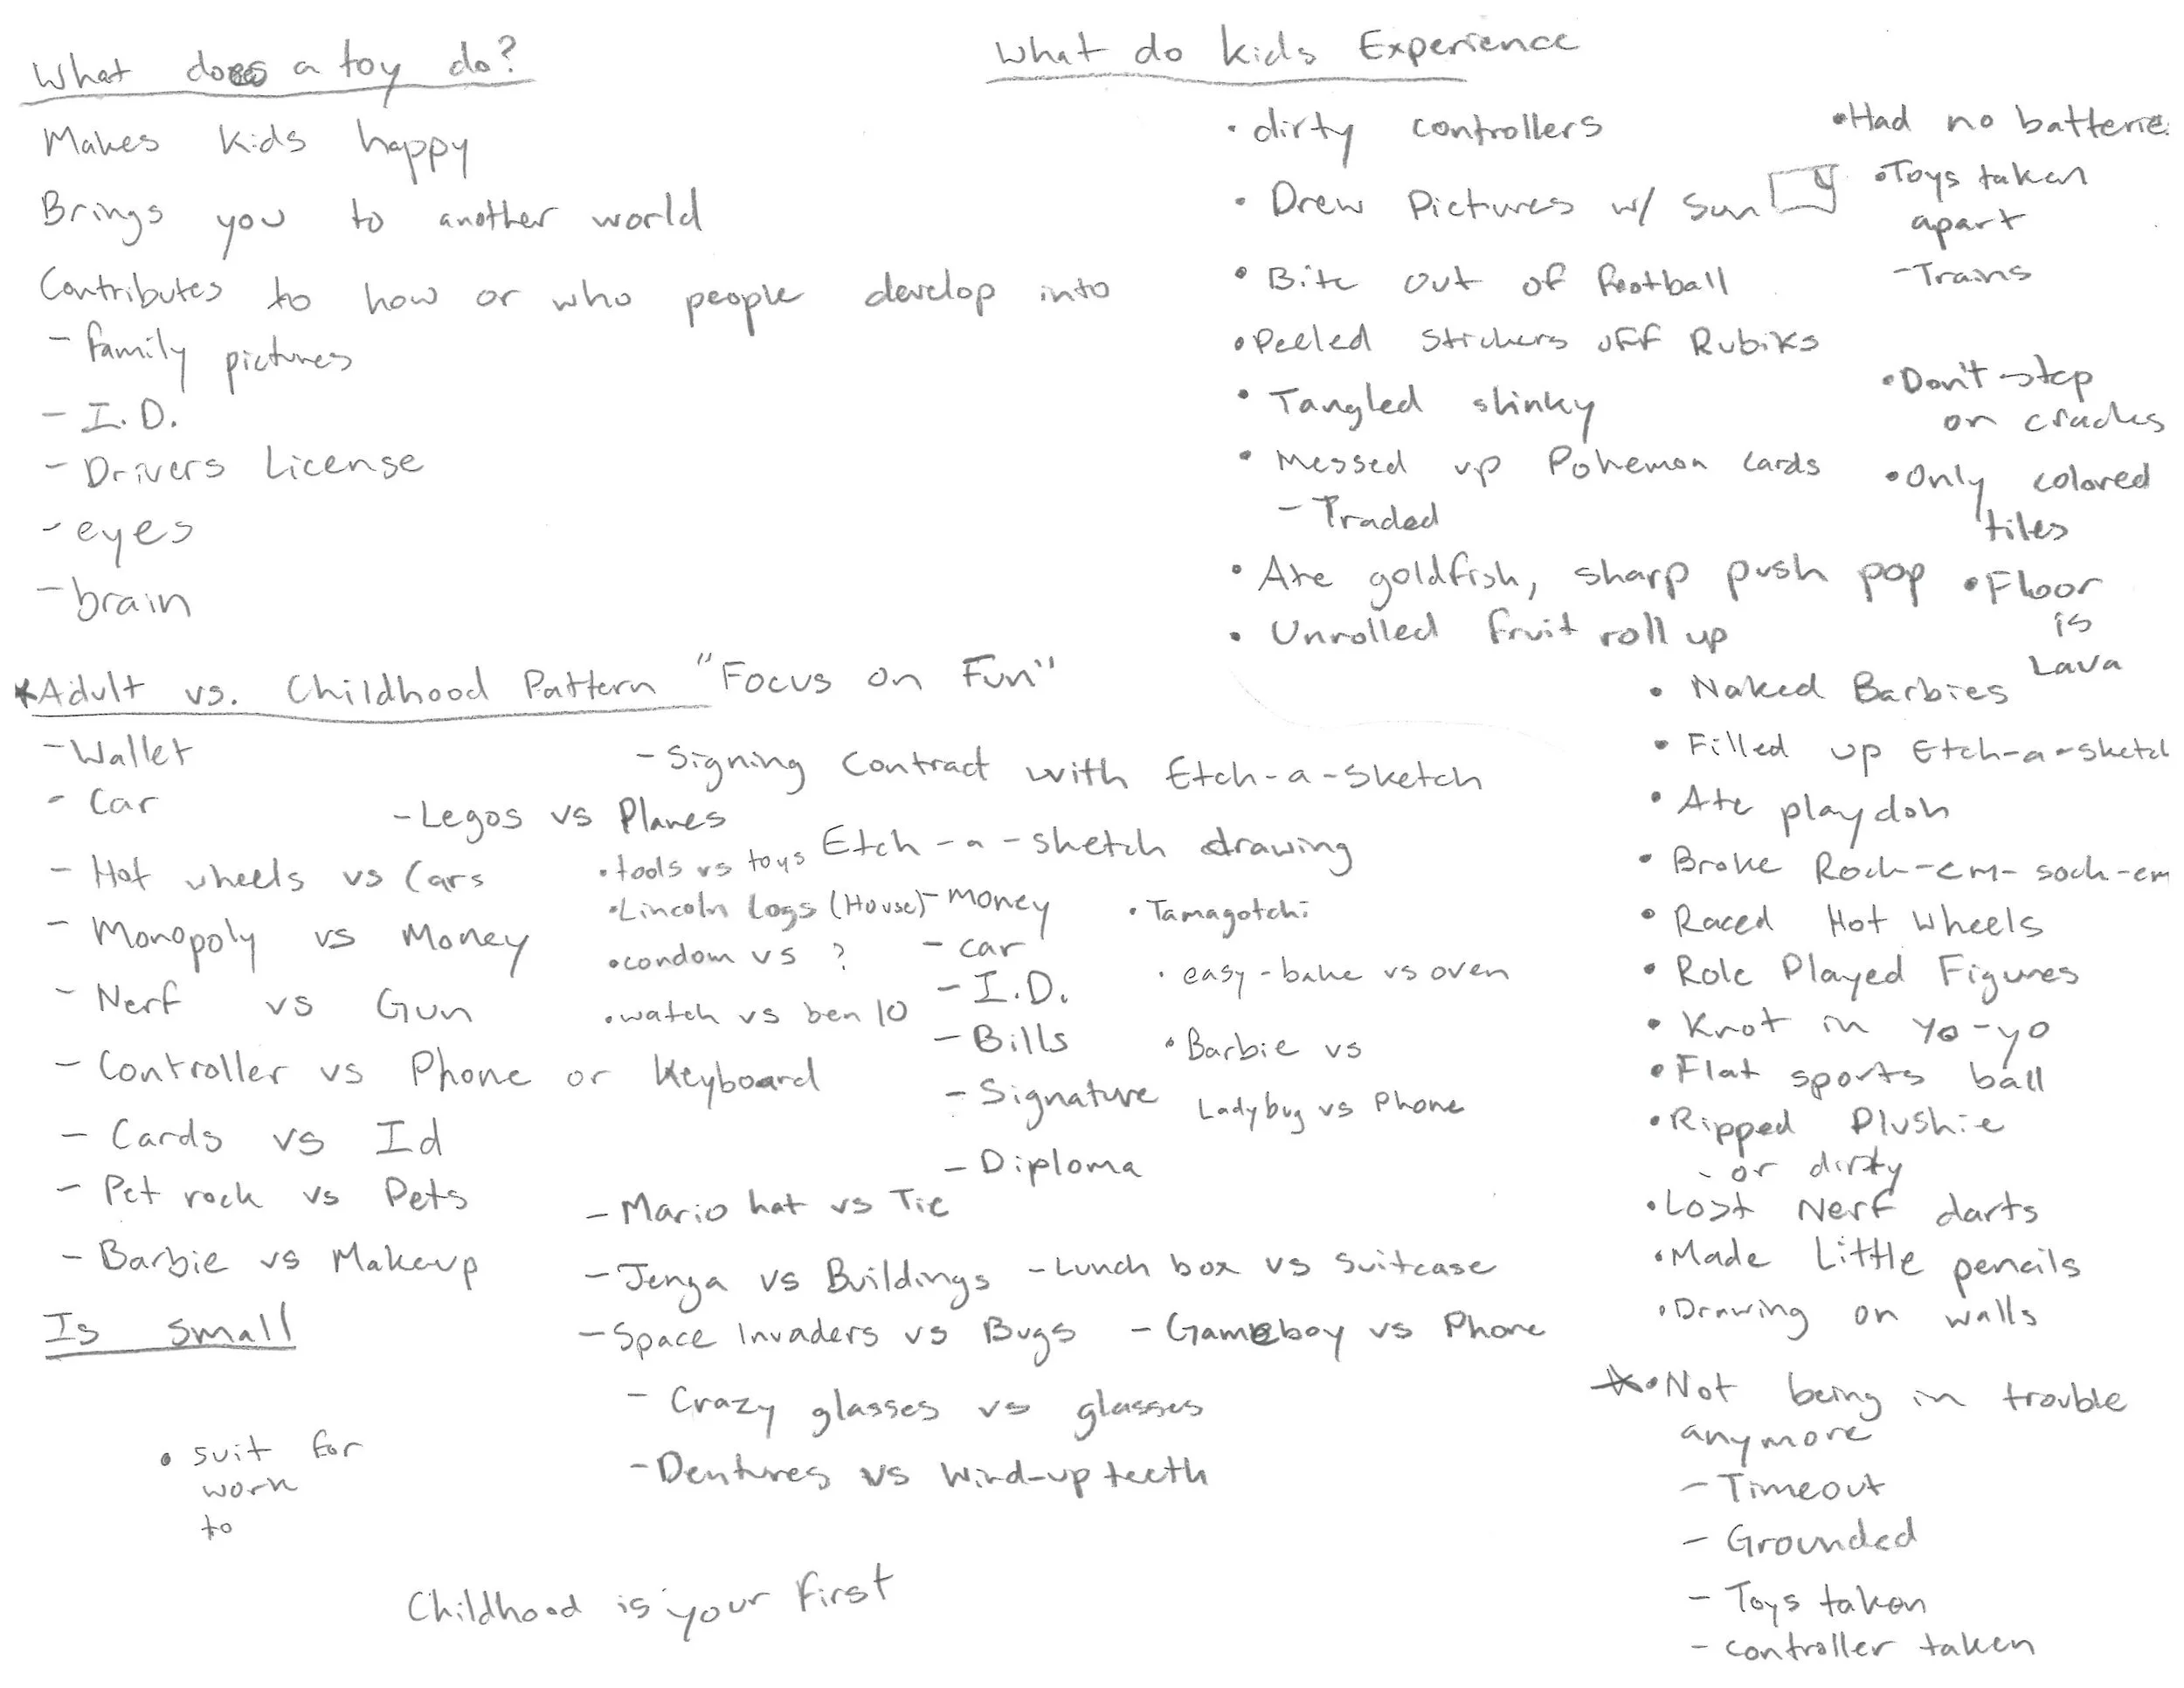 What does a toy do?
Makes kids happy
Brings you to another world
Contributes to how or who people develop into
- family pictures
- I.D.
- Drivers License
- eyes
- brain
*Adult vs. Childhood Pattern "Focus on Fun"
- Wallet
- Car
- Hot wheels vs Cars
- Monopoly vs Money
- Nerf vs Gun
- Controller vs Phone or Keyboard
- Cards vs Id
- Pet rock vs Pets
- Barbie vs Makeup
Is small
• suit for
work
to
- Signing Contract with Etch-a-Sketch
- Legos vs Planes
Etch-a-sketch drawing
• tools vs toys
• Lincoln Logs (House)
• condom vs ?
• watch vs ben 10
- Money
- car
- I.D.
- Bills
- Signature
- Diploma
• Tamagotchi
• easy-bake vs oven
• Barbie vs
Ladybug vs Phone
- Mario hat vs Tie
- Jenga vs Buildings
- Lunch box vs suitcase
- Space Invaders vs Bugs
- Gameboy vs Phone
- Crazy glasses vs glasses
- Dentures vs Wind-up teeth
Childhood is your first
What do kids Experience
• dirty controllers
• Drew Pictures w/ Sun
• Bite out of football
• Peeled Stickers off Rubiks
• Tangled slinky
• Messed up Pokemon cards
- Traded
• Ate goldfish, sharp push pop
• Unrolled fruit roll up
• Had no batterie
• Toys taken
apart
- Trains
• Don't step
on cracks
• Only colored
tiles
• Floor
is
Lava
• Naked Barbies
• Filled up Etch-a-sketch
• Ate playdoh
• Broke Rock-em-sock-em
• Raced Hot Wheels
• Role Played Figures
• Knot in yo-yo
• Flat sports ball
• Ripped Plushie
- or dirty
• Lost Nerf darts
• Made Little pencils
• Drawing on walls
* • Not being in trouble
anymore
- Timeout
- Grounded
- Toys taken
- controller taken